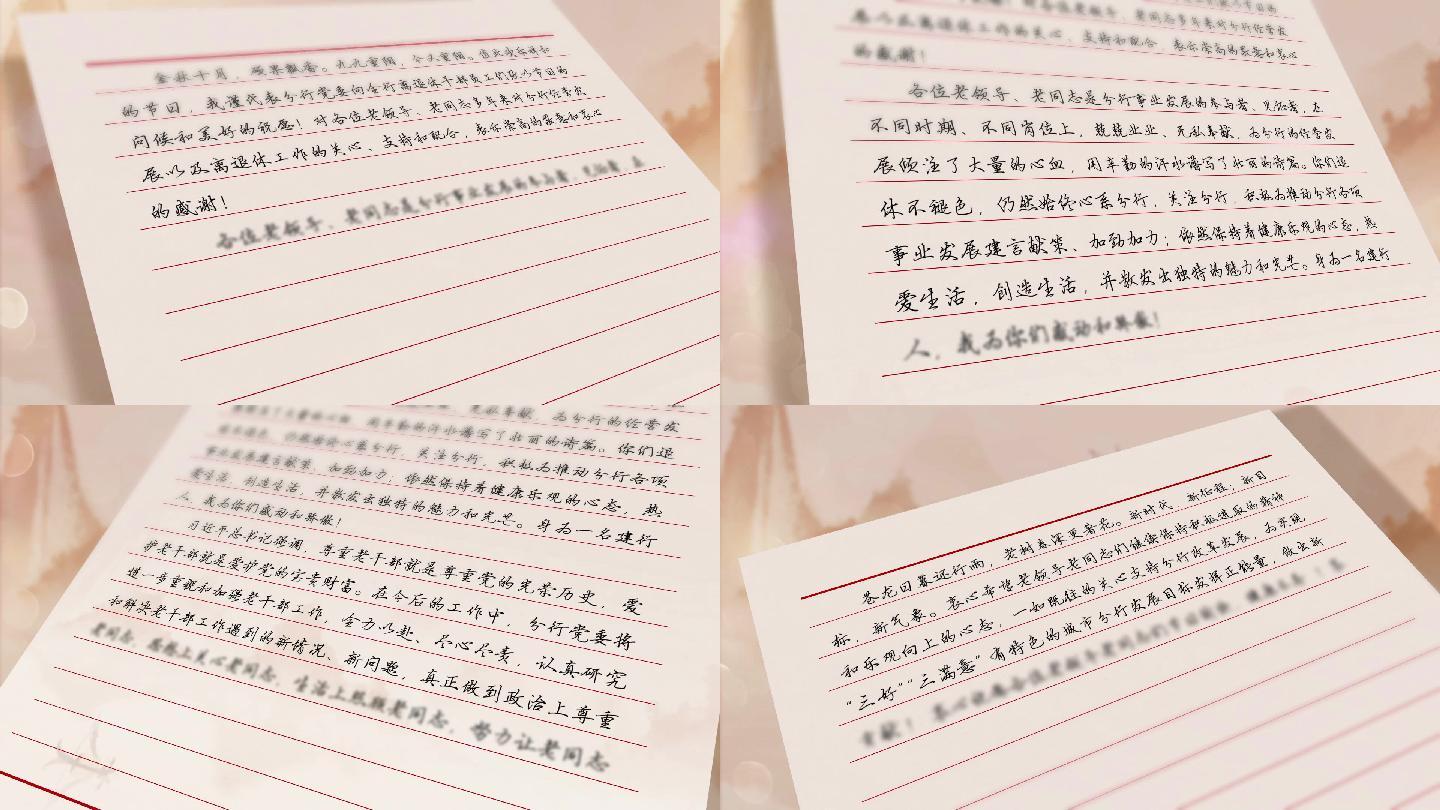 金秋十月，硕果飘香。九九重阳，今又重阳。值此欢乐祥和
的节日，我谨代表分行党委向全行离退休干部员工们致以节日的
问候和美好的祝愿！对各位老领导、老同志多年来对分行经营发
展以及离退休工作的关心、支持和配合，表示崇高的敬意和衷心
的感谢！
各位老领导、老同志是分行事业发展的参与者、见证者，在
展以及离退休工作的关心、支持和配合，表示崇高的敬意和衷心
的感谢！
各位老领导、老同志是分行事业发展的参与者、见证者，在
不同时期、不同岗位上，兢兢业业、无私奉献，为分行的经营发
展倾注了大量的心血，用辛勤的汗水谱写了壮丽的诗篇。你们退
休不褪色，仍然始终心系分行，关注分行，积极为推动分行各项
事业发展建言献策、加劲加力；依然保持着健康乐观的心态，热
爱生活，创造生活，并散发出独特的魅力和光芒。身为一名建行
人，我为你们感动和骄傲！
展倾注了大量的心血，用辛勤的汗水谱写了壮丽的诗篇。你们退
休不褪色，仍然始终心系分行，关注分行，积极为推动分行各项
事业发展建言献策、加劲加力；依然保持着健康乐观的心态，热
爱生活，创造生活，并散发出独特的魅力和光芒。身为一名建行
人，我为你们感动和骄傲！
习近平总书记强调，尊重老干部就是尊重党的光荣历史，爱
护老干部就是爱护党的宝贵财富。在今后的工作中，分行党委将
进一步重视和加强老干部工作，全力以赴、尽心尽责，认真研究
和解决老干部工作遇到的新情况、新问题，真正做到政治上尊重
老同志，思想上关心老同志，生活上照顾老同志，努力让老同志
苍龙日暮还行雨，老树春深更著花。新时代、新征程、新目
标、新气象。衷心希望老领导老同志们继续保持积极进取的精神
和乐观向上的心态，一如既往的关心支持分行改革发展，为实现
“三好”“三满意”有特色的城市分行发展目标发挥正能量，做出新
贡献！